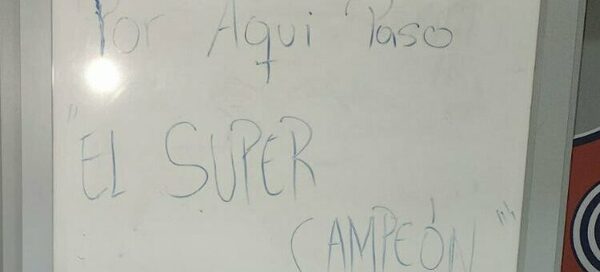 Por Aqui Paso
"EL SUPER
CAMPEÓN"